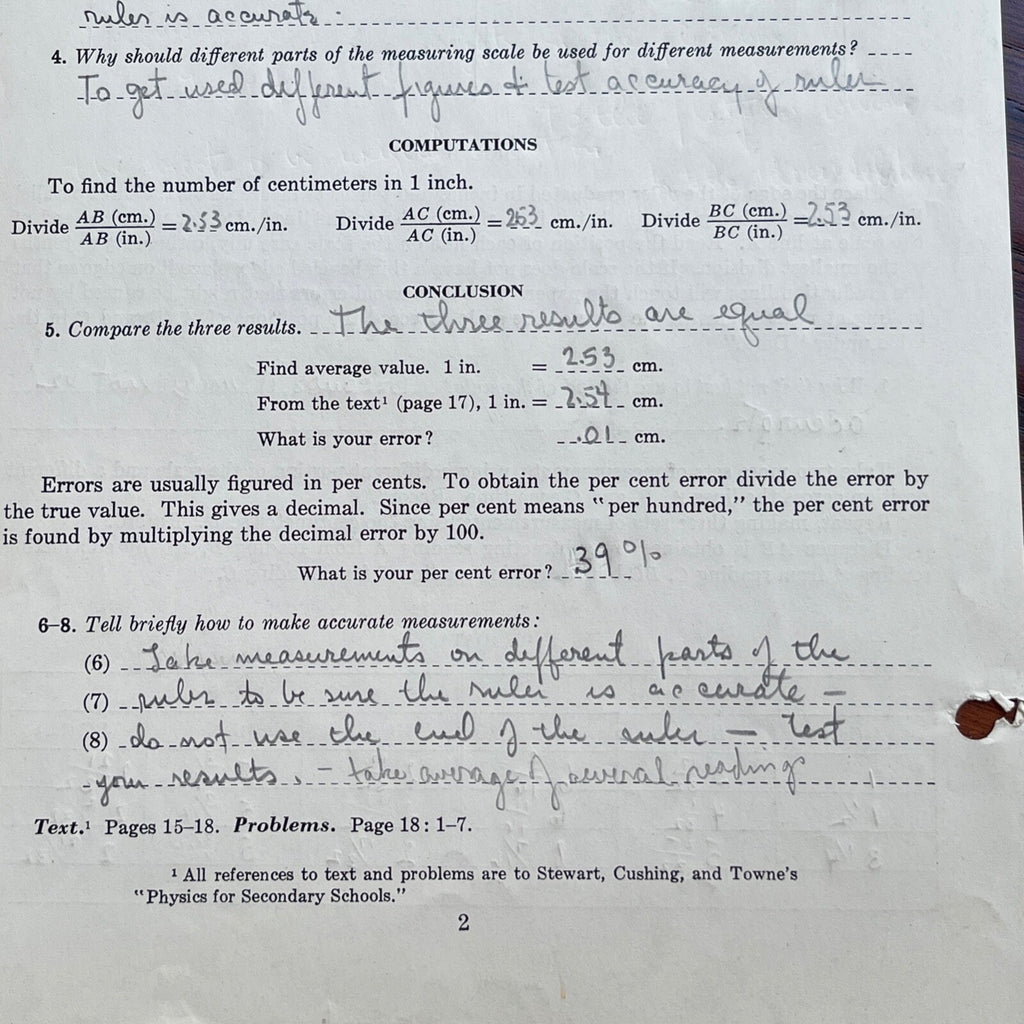 ruler is accurate.
4. Why should different parts of the measuring scale be used for different measurements?
To get used different figures & test accuracy of ruler
COMPUTATIONS
To find the number of centimeters in 1 inch.
Divide AB (cm.) / AB (in.) = 2.53 cm./in. Divide AC (cm.) / AC (in.) = 253 cm./in. Divide BC (cm.) / BC (in.) = 2.53 cm./in.
CONCLUSION
5. Compare the three results. The three results are equal
Find average value. 1 in. = 2.53 cm.
From the text¹ (page 17), 1 in. = 2.54 cm.
What is your error? .01 cm.
Errors are usually figured in per cents. To obtain the per cent error divide the error by
the true value. This gives a decimal. Since per cent means "per hundred," the per cent error
is found by multiplying the decimal error by 100.
What is your per cent error? 39 %
6–8. Tell briefly how to make accurate measurements:
(6) Take measurements on different parts of the
(7) ruler to be sure the ruler is accurate –
(8) do not use the end of the ruler – test
your results. – take average of several readings
Text.¹ Pages 15–18. Problems. Page 18: 1–7.
¹ All references to text and problems are to Stewart, Cushing, and Towne's
"Physics for Secondary Schools."
2